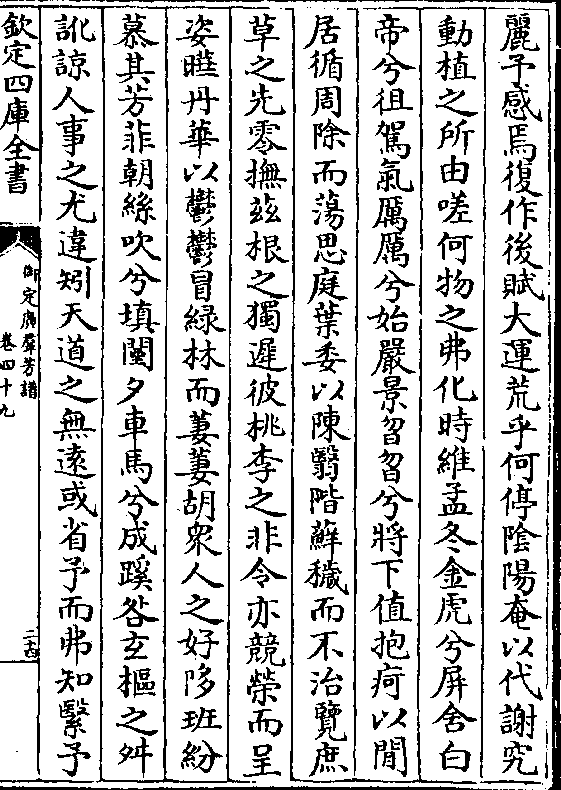 麗予感焉復作後賦大運荒乎何停陰陽奄以代謝究
動植之所由嗟何物之弗化時維孟冬金虎兮屏舍白
帝兮徂駕氣厲厲兮始嚴景曶曶兮將下值抱疴以閒
居循周除而蕩思庭葉委以陳翳階蘚穢而不治覽庶
草之先零撫兹根之獨遲彼桃李之非令亦競榮而呈
姿曃丹華以鬱鬱冒綠林而萋萋胡衆人之好陊班紛
慕其芳菲朝絲吹兮填闉夕車馬兮成蹊咎玄樞之舛
訛諒人事之尤違矧天道之無遠或省予而弗知繄予
欽定四庫全書
御定廣羣芳譜
卷四十九
二十四